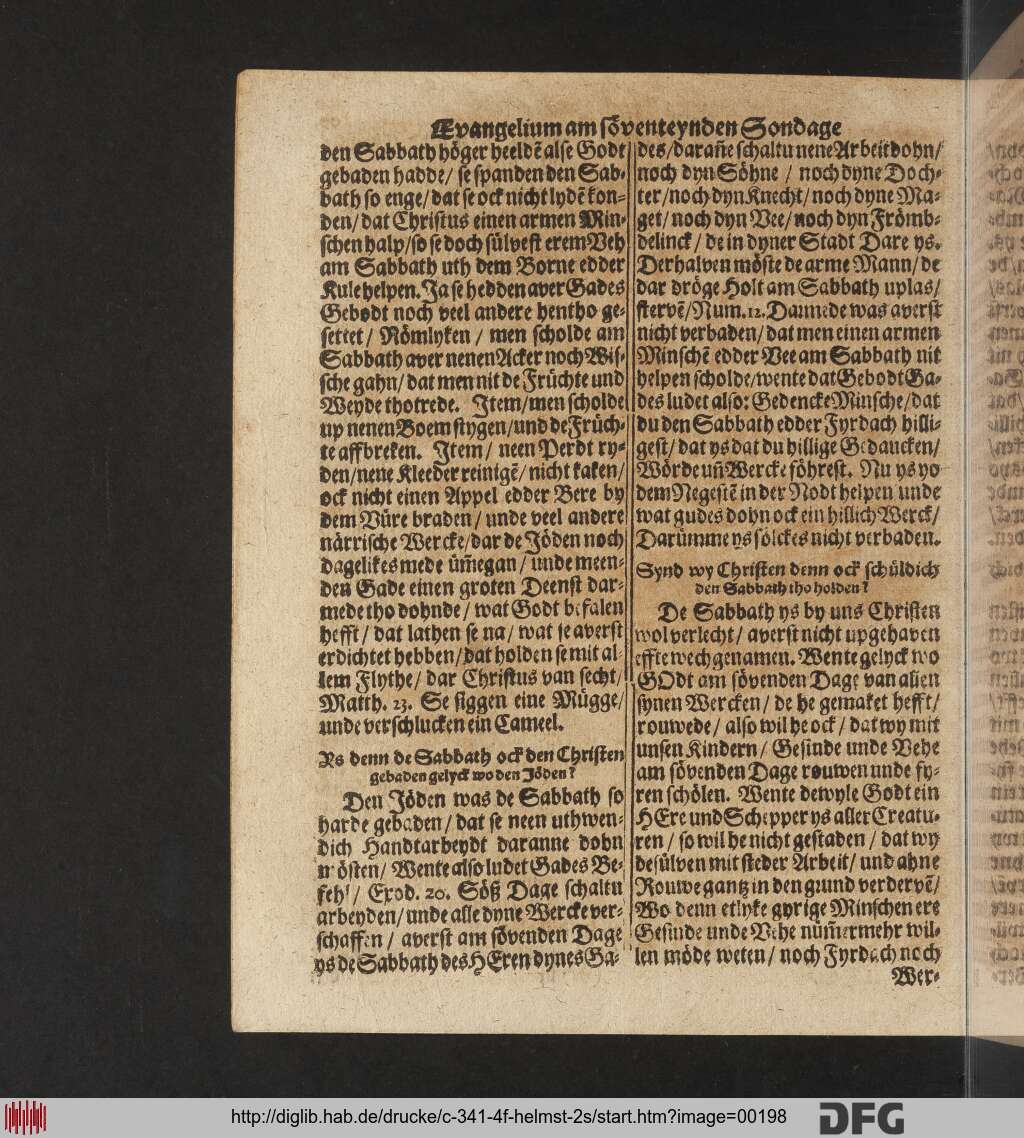 Evangelium am söventeynden Sondage
den Sabbath höger heeldē alse Godt
gebaden hadde / se spanden den Sab-
bath so enge / dat se ock nicht lydē kon-
den / dat Christus einen armen Min-
schen halp / so se doch sülvest erem Veh
am Sabbath uth dem Borne edder
Kule helpen. Ja se hedden aver Gades
Gebodt noch veel andere hentho ge-
settet / Nömlyken / men scholde am
Sabbath aver nenen Acker noch Wis-
sche gahn / dat men nit de Früchte und
Weyde thotrede. Item / men scholde
up nenen Boem stygen / und de Früch-
te affbreken. Item / neen Perdt ry-
den / nene Kleeder reinigē / nicht kaken /
ock nicht einen Appel edder Bere by
dem Vüre braden / unde veel andere
närrische Wercke / dar de Jöden noch
dagelikes mede üm̄egan / unde meen-
den Gade einen groten Deenst dar-
mede tho dohnde / wat Godt befalen
hefft / dat lathen se na / wat se averst
erdichtet hebben / dat holden se mit al-
lem Flythe / dar Christus van secht /
Matth. 23. Se siggen eine Mügge /
unde verschlucken ein Cameel.
Ys denn de Sabbath ock den Christen
gebaden gelyck wo den Jöden?
Den Jöden was de Sabbath so
harde gebaden / dat se neen uthwen-
dich Handtarbeydt daranne dohn
mösten / Wente also ludet Gades Be-
fehl / Exod. 20. Söß Dage schaltu
arbeyden / unde alle dyne Wercke ver-
schaffen / averst am sövenden Dage
ys de Sabbath des HEren dynes Ga-
des / darañe schaltu nene Arbeit dohn /
noch dyn Söhne / noch dyne Doch-
ter / noch dyn Knecht / noch dyne Ma-
get / noch dyn Vee / noch dyn Frömb-
delinck / de in dyner Stadt Dare ys.
Derhalven möste de arme Mann / de
dar dröge Holt am Sabbath uplas /
stervē / Num. 12. Darmede was averst
nicht verbaden / dat men einen armen
Minschē edder Vee am Sabbath nit
helpen scholde / wente dat Gebodt Ga-
des ludet also: Gedencke Minsche / dat
du den Sabbath edder Fyrdach hilli-
gest / dat ys dat du hillige Gedancken /
Wörde uñ Wercke föhrest. Nu ys yo
dem Negestē in der Nodt helpen unde
wat gudes dohn ock ein hillich Werck /
Darümme ys sölckes nicht verbaden.
Synd wy Christen denn ock schüldich
den Sabbath tho holden?
De Sabbath ys by uns Christen
wol verlecht / averst nicht upgehaven
effte wech genamen. Wente gelyck wo
GOdt am sövenden Dage van allen
synen Wercken / de he gemaket hefft /
rouwede / also wil he ock / dat wy mit
unsen Kindern / Gesinde unde Vehe
am sövenden Dage rouwen unde fy-
ren schölen. Wente dewyle Godt ein
HEre und Schepper ys aller Creatu-
ren / so wil he nicht gestaden / dat wy
desülven mit steder Arbeit / und ahne
Rouwe gantz in den grund verdervē /
Wo denn etlyke gyrige Minschen ere
Gesinde unde Vehe nüm̄ermehr wil-
len möde weten / noch Fyrdach noch
Wer-
http://diglib.hab.de/drucke/c-341-4f-helmst-2s/start.htm?image=00198
DFG